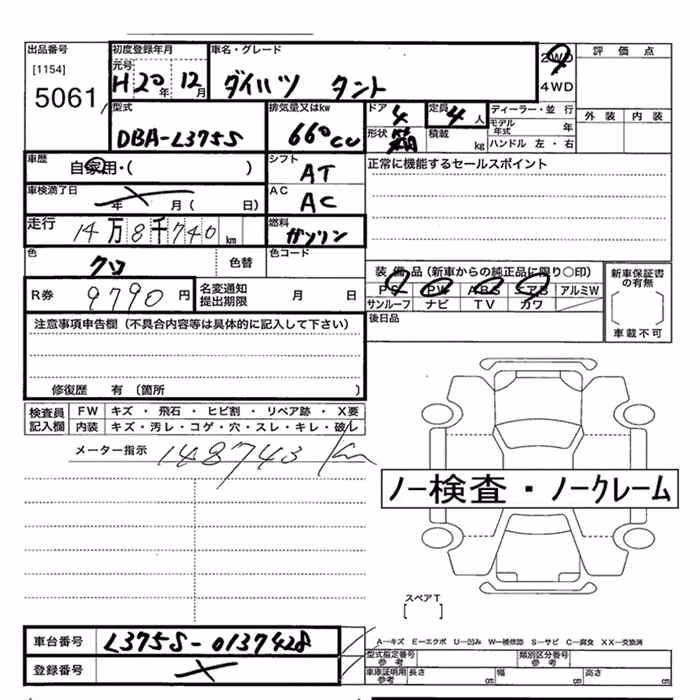 出品番号
[1154]
5061
初度登録年月
元号
H 20年 12月
車名・グレード
ダイハツ タント
2WD
4WD
評価点
外装 内装
型式
DBA-L375S
排気量又はkw
660cc
ドア 4
形状 箱
定員 4人
積載 kg
ディーラー・並行
モデル年式 年
ハンドル 左・右
車歴
自家用・( )
シフト
AT
正常に機能するセールスポイント
車検満了日
年 月 ( 日)
AC
AC
走行
14万8千740km
燃料
ガソリン
色
クロ
色替
色コード
装備品(新車からの純正品に限り○印)
PS PW ABS エアB アルミW
サンルーフ ナビ TV カワ
新車保証書の有無
[ ]
車載不可
R券 9790円
名変通知提出期限 月 日
後日品
注意事項申告欄(不具合内容等は具体的に記入して下さい)
修復歴 有 (箇所 )
検査員記入欄
FW キズ・飛石・ヒビ割・リペア跡・X要
内装 キズ・汚レ・コゲ・穴・スレ・キレ・破レ
メーター指示 148743 Km
ノー検査・ノークレーム
スペアT
[ ]
車台番号 L375S-0137428
登録番号
A-キズ E-エクボ U-凹み W-補修跡 S-サビ C-腐食 XX-交換済
型式指定番号 参考
類別区分番号 参考
車庫証明用 参考 長さ cm 幅 cm 高さ cm